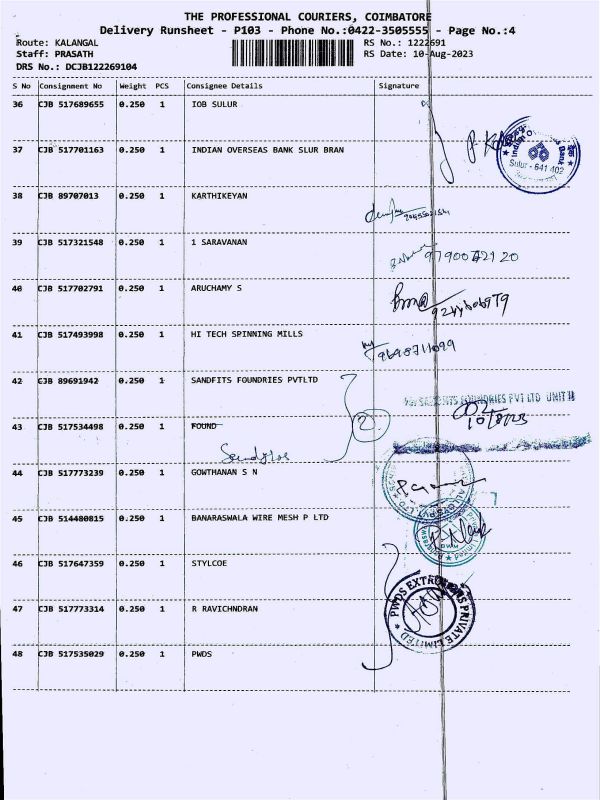 THE PROFESSIONAL COURIERS, COIMBATORE
Delivery Runsheet - P103 - Phone No.:0422-3505555 - Page No.:4
Route: KALANGAL
Staff: PRASATH
DRS No.: DCJB122269104
RS No.: 1222691
RS Date: 10-Aug-2023
S No Consignment No Weight PCS Consignee Details Signature
36 CJB 517689655 0.250 1 IOB SULUR
37 CJB 517701163 0.250 1 INDIAN OVERSEAS BANK SLUR BRAN
Indian Overseas Bank
Sulur - 641 402
38 CJB 89707013 0.250 1 KARTHIKEYAN
39 CJB 517321548 0.250 1 1 SARAVANAN
9790042120
40 CJB 517702791 0.250 1 ARUCHAMY S
41 CJB 517493998 0.250 1 HI TECH SPINNING MILLS
9698711099
42 CJB 89691942 0.250 1 SANDFITS FOUNDRIES PVTLTD
FOUNDRIES PVT LTD UNIT II
10/8/23
43 CJB 517534498 0.250 1 FOUND
2
44 CJB 517773239 0.250 1 GOWTHANAN S N
45 CJB 514480815 0.250 1 BANARASWALA WIRE MESH P LTD
46 CJB 517647359 0.250 1 STYLCOE
47 CJB 517773314 0.250 1 R RAVICHNDRAN
PWDS EXTRUSIONS PRIVATE LIMITED
48 CJB 517535029 0.250 1 PWDS